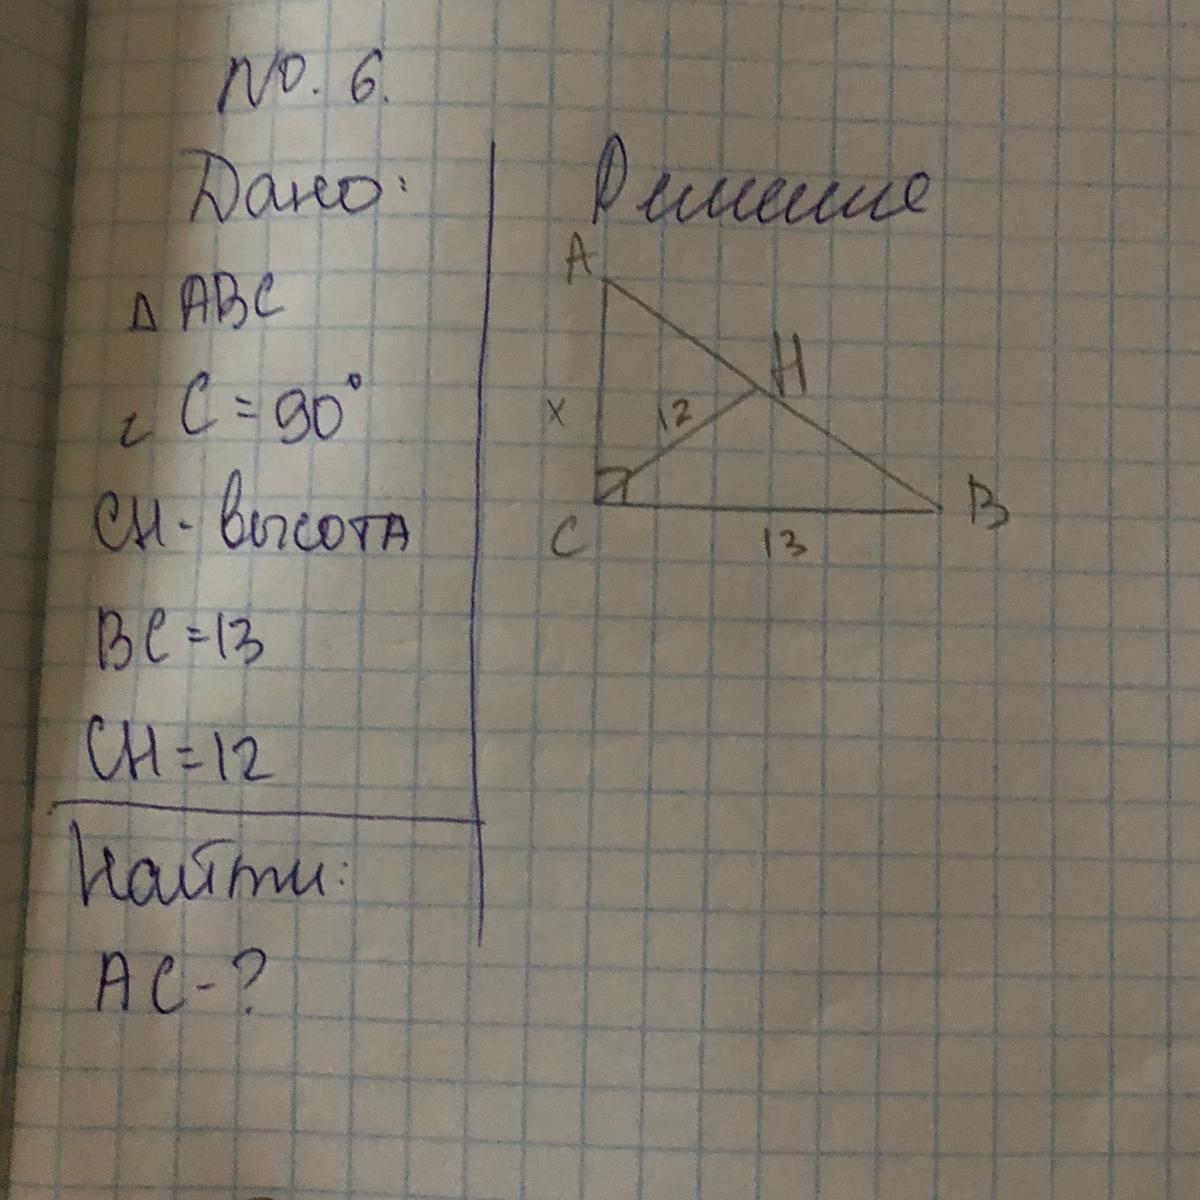 №. 6.
Дано:
Δ ABC
∠ C = 90°
CH - высота
BC = 13
CH = 12
Найти:
AC - ?
Решение
A
H
x
12
C
13
B